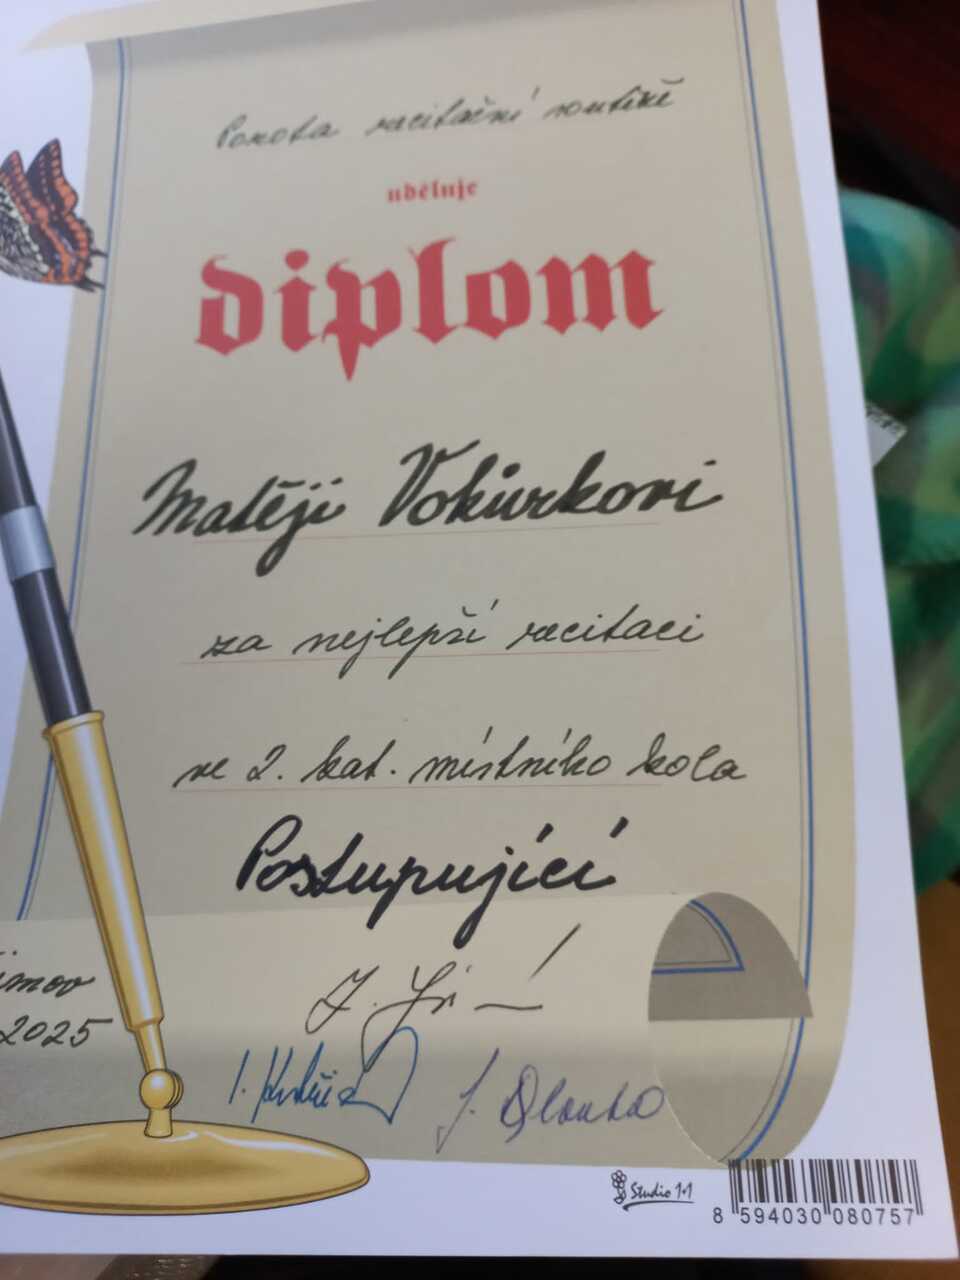 Porota recitační soutěže
uděluje
diplom
Matěji Vokurkovi
za nejlepší recitaci
ve 2. kat. místního kola
Postupující
imov
2025
Studio 1+1
8 594030 080757